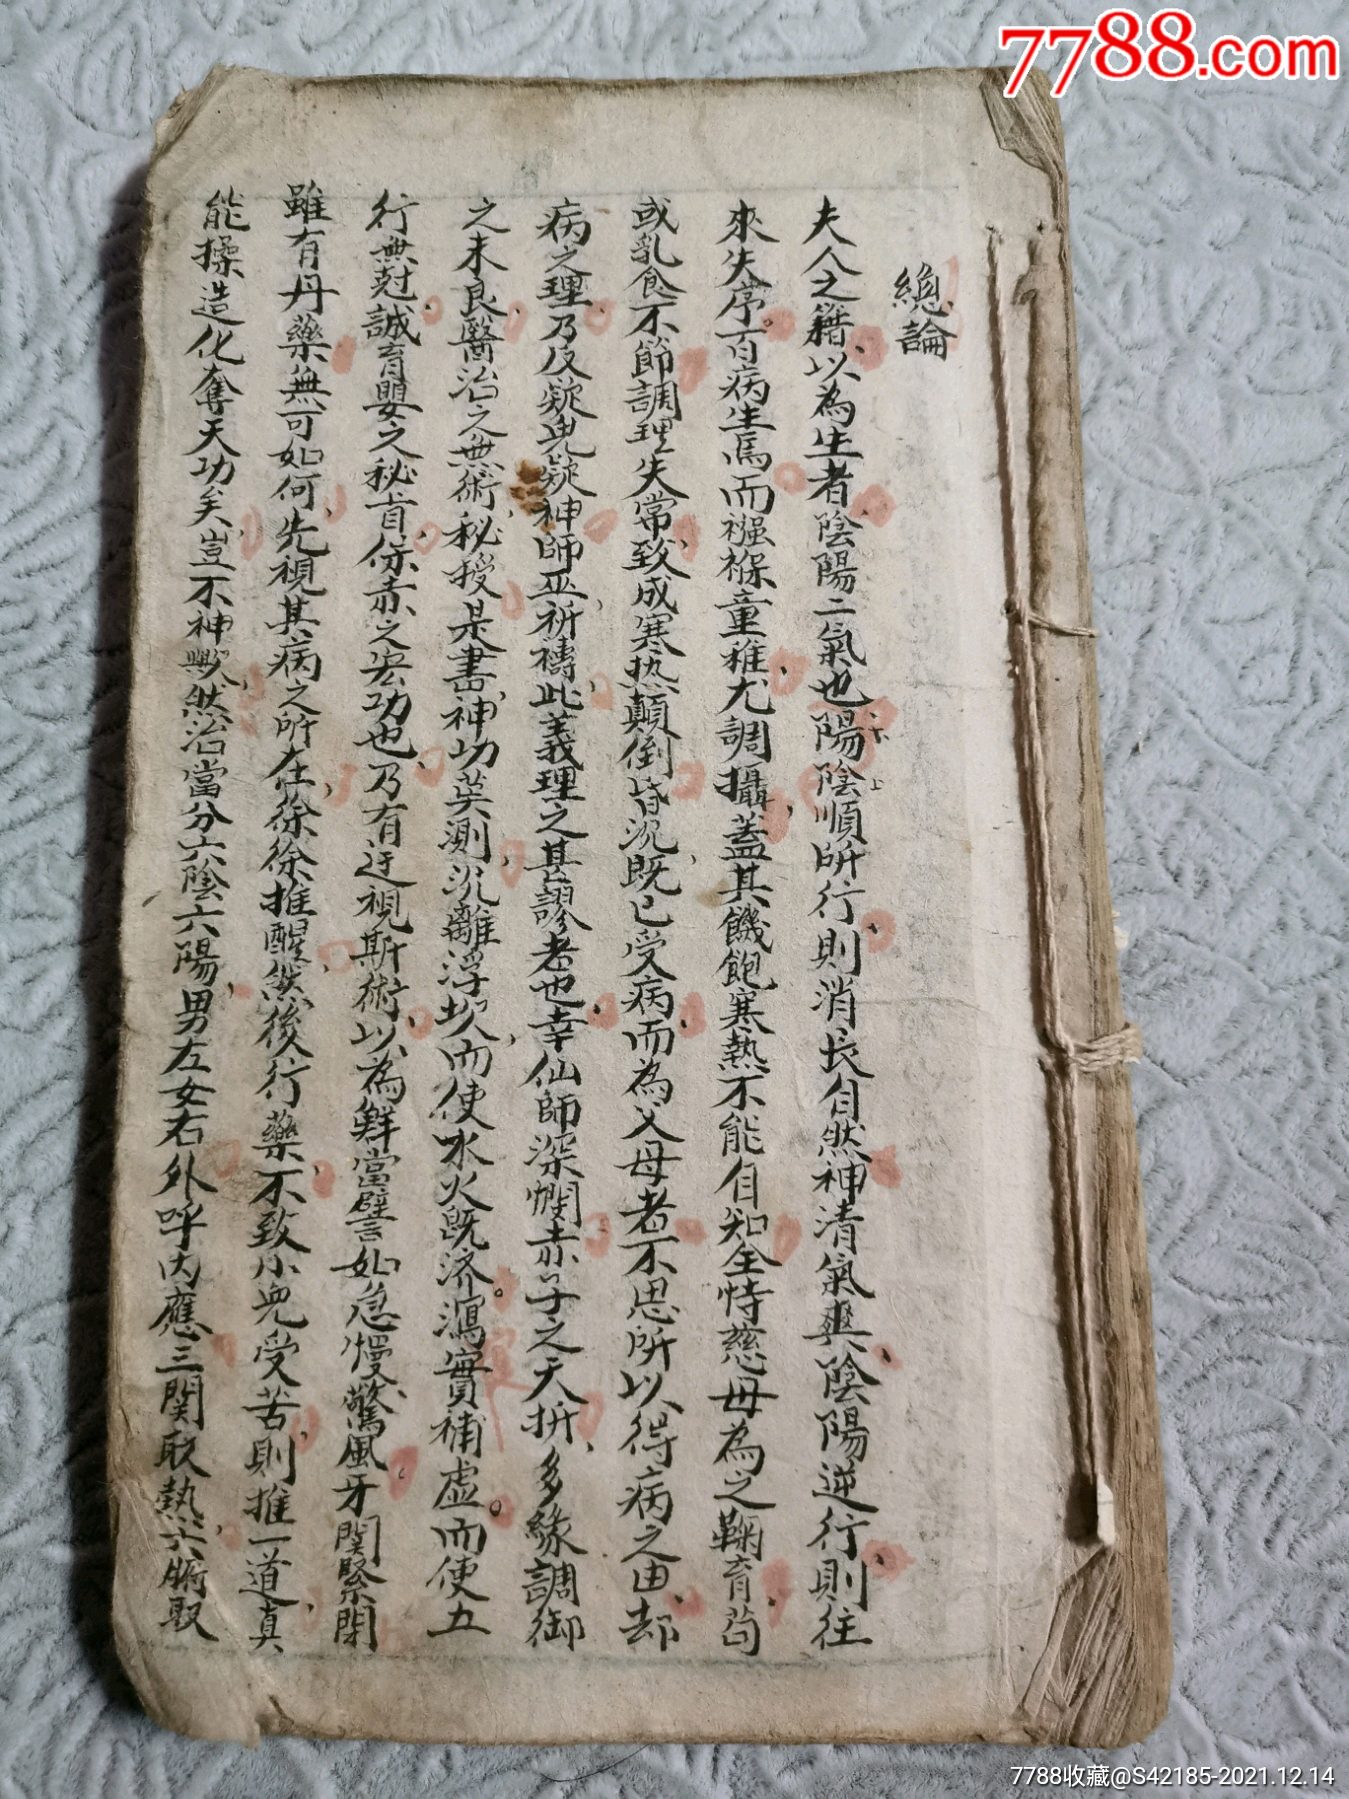 7788.com
總論
夫人之籍以為生者陰陽二氣也陽陰順所行則消長自然神清氣爽陰陽逆行則往
來失序百病生焉而襁褓童稚尤調攝蓋其饑飽寒熱不能自知全恃慈母為之鞠育苟
或乳食不節調理失常致成寒热顛倒昏沉既已受病而為父母者不思所以得病之由却
病之理乃反疑鬼疑神師巫祈禱此義理之甚謬者也幸仙師深憫赤子之夭折多緣調御
之未良醫治之無術秘授是書神功莫測沉離浮坎而使水火既济瀉實補虛而使五
行無愆誠育嬰之秘旨保赤之宏功也乃有迂視斯術以為鮮當譬如急慢驚風牙関緊閉
雖有丹藥無可如何先視其病之所在徐徐推醒然後行藥不致小兒受苦則推一道真
能操造化奪天功矣豈不神歟然治當分六陰六陽男左女右外呼内應三関取熱六腑取
7788收藏@S42185-2021.12.14